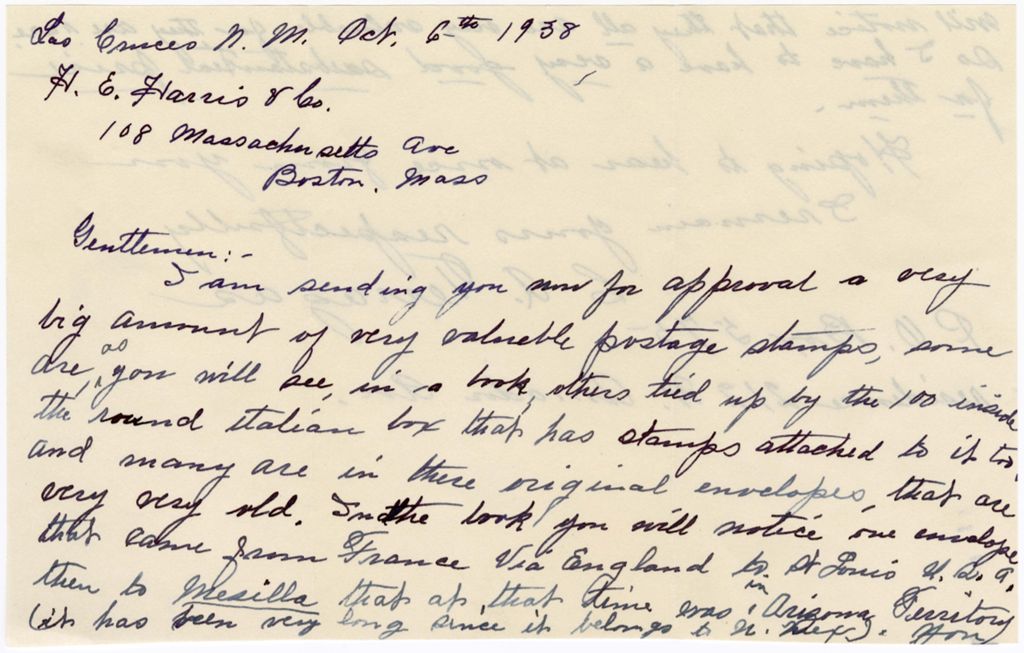 Las Cruces N. M. Oct. 6th 1938
H. E. Harris & Co.
108 Massachusetts Ave
Boston, Mass
Gentlemen:-
I am sending you now for approval a very
big amount of very valueble postage stamps, some
are, as you will see, in a book, others tied up by the 100 inside
the round italian box that has stamps attached to it too,
and many are in there original envelopes, that are
very very old. In the book you will notice one envelope
that came from France Via England to St Louis U. S. A.
then to Mesilla that at that time was in Arizona Territory
(it has been very long since it belongs to N. Mex). You